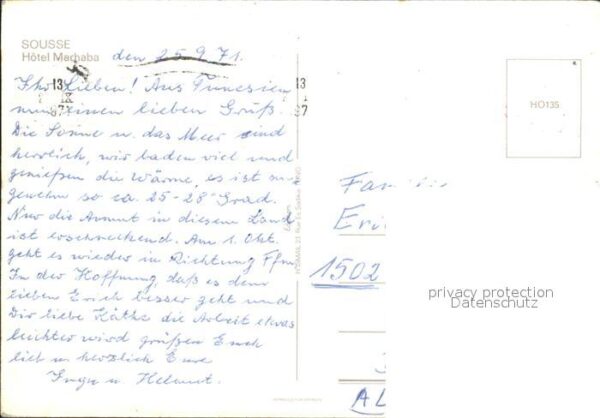 SOUSSE
Hôtel Marhaba
den 25.9.71.
Ihr Lieben! Aus Tunesien
nun einen lieben Gruß.
Die Sonne u. das Meer sind
herrlich, wir baden viel und
genießen die Wärme, es ist an-
genehm so ca. 25-28 Grad.
Nur die Armut in diesem Land
ist erschreckend. Am 1. Okt.
geht es wieder in Richtung Ffm
In der Hoffnung, daß es dem
lieben Erich besser geht und
Dir liebe Käthe die Arbeit etwas
leichter wird grüßen Euch
lieb u. herzlich Eure
Inge u. Helmut.
13
13
HO135
Fam
Eri
1502
privacy protection
Datenschutz
AL